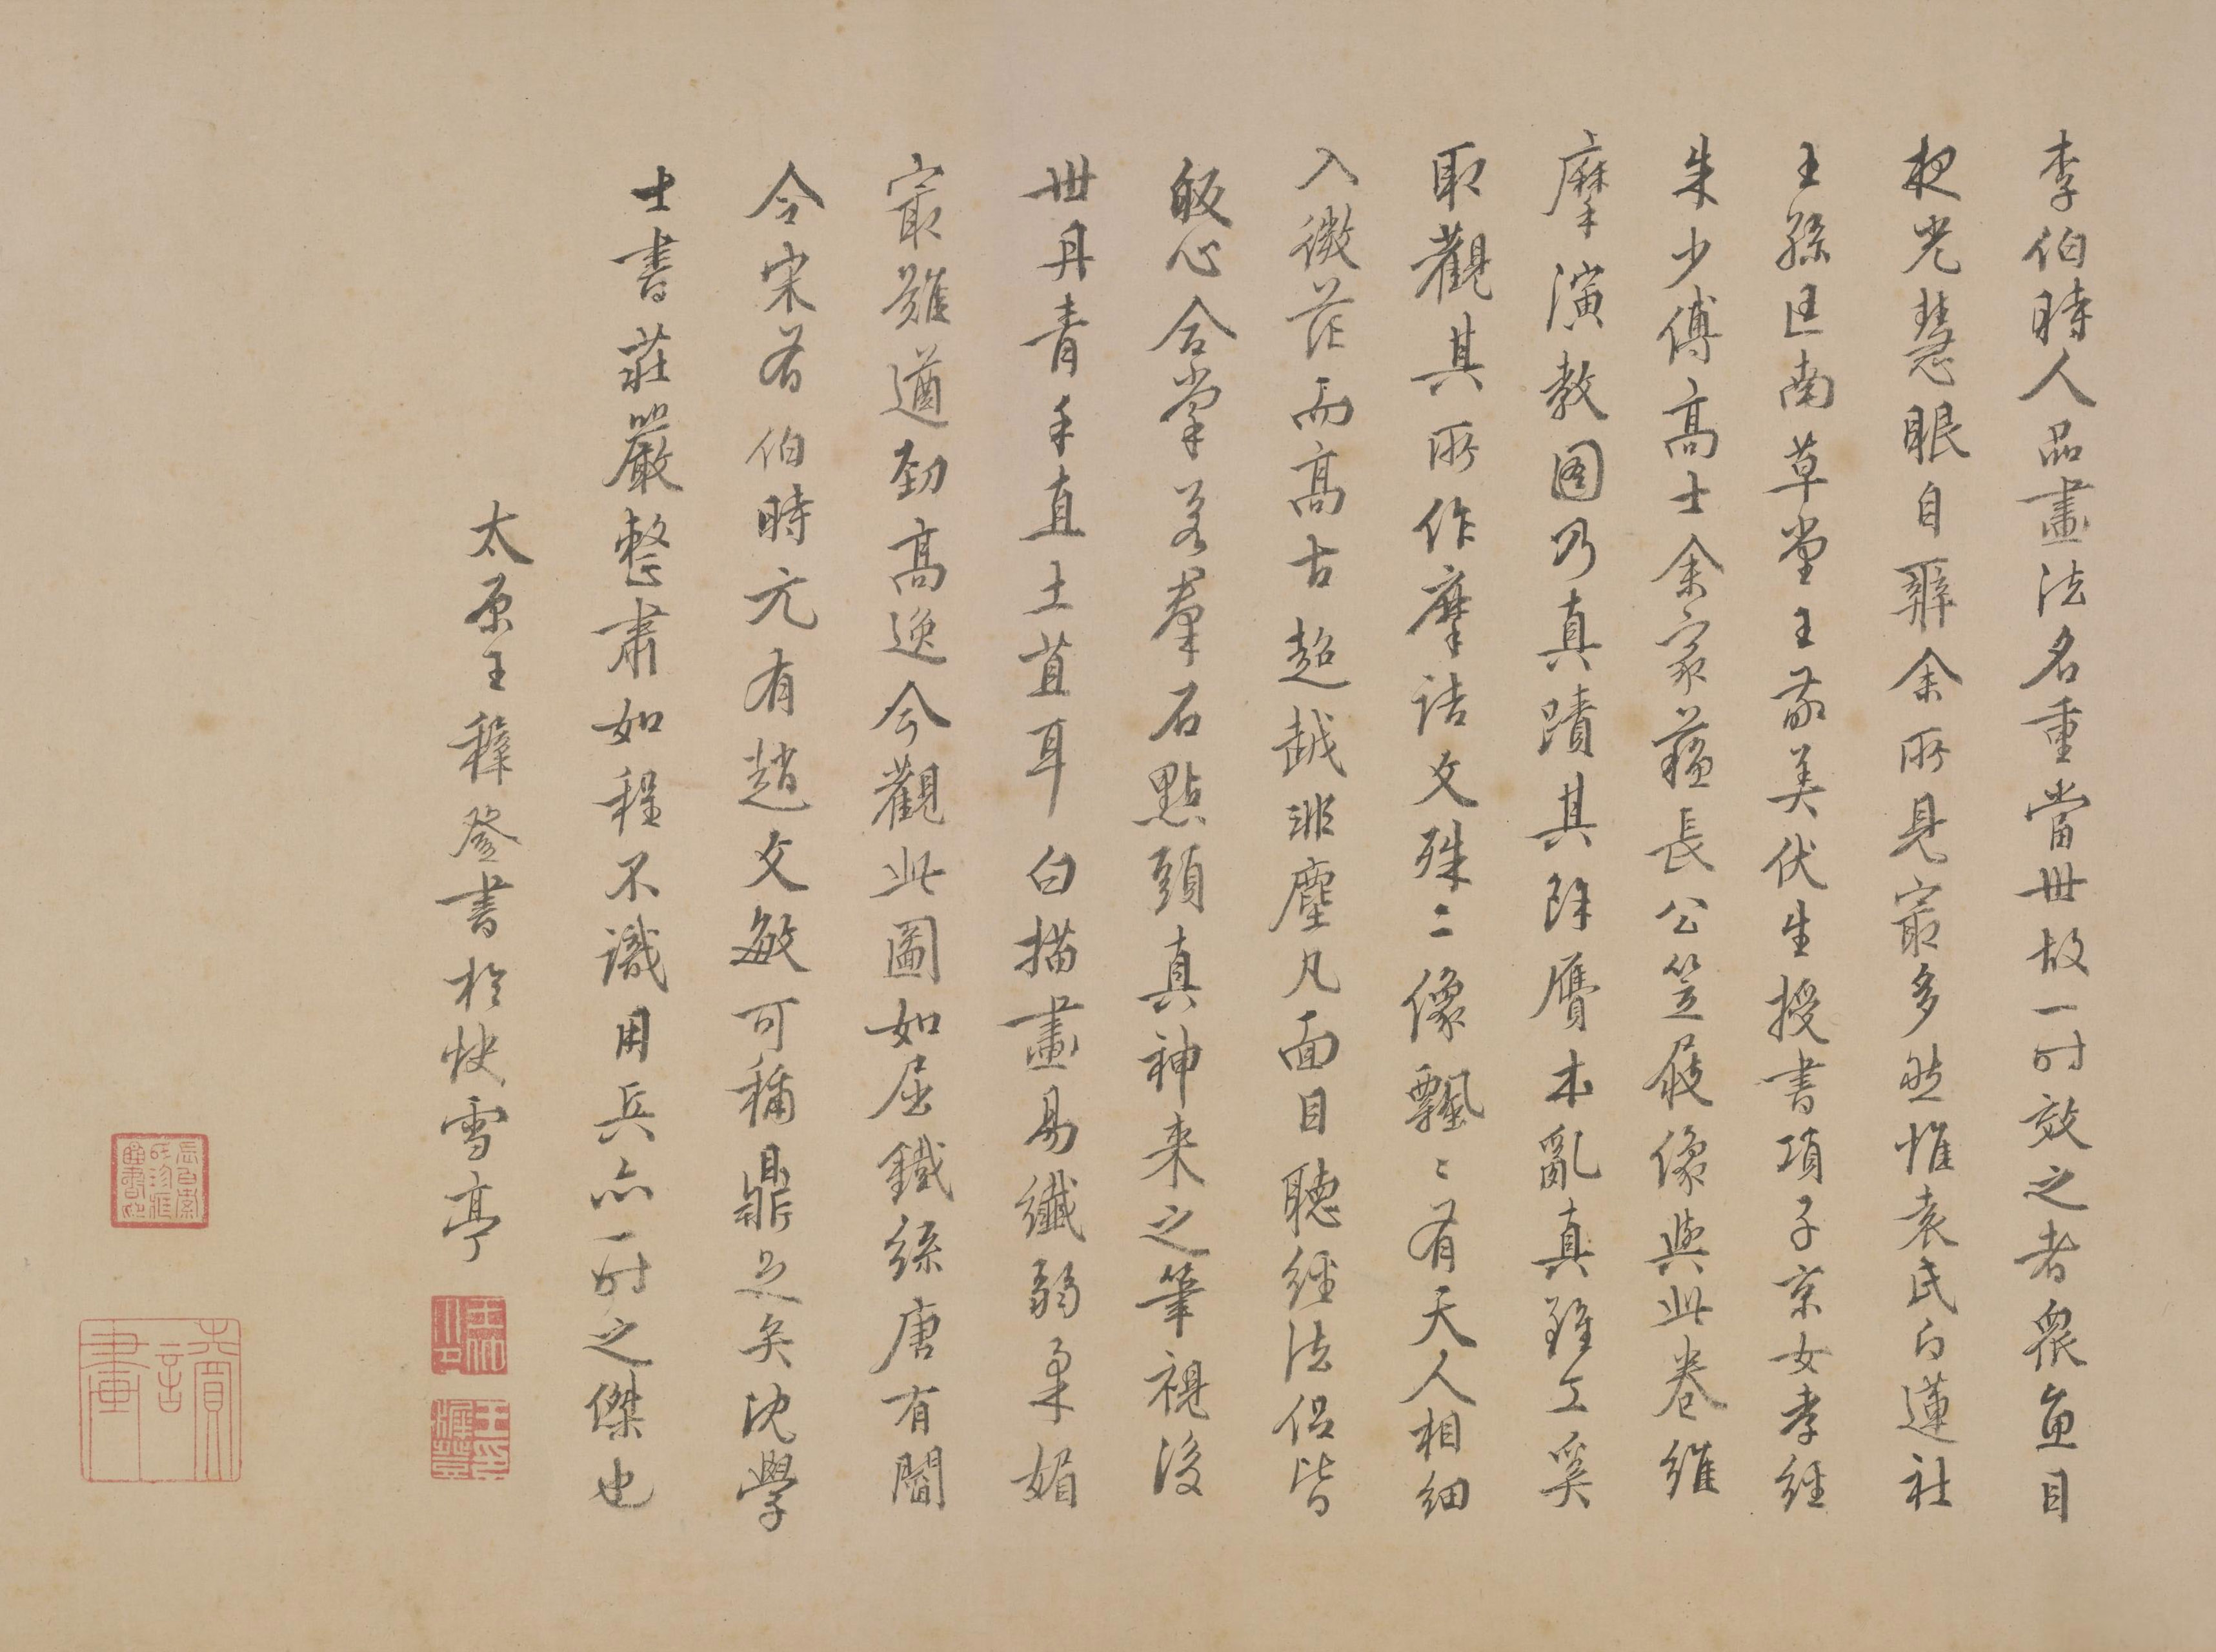 李伯時人品畫法名重當世故一時效之者衆魚目
夜光慧眼自辨余所見寂多然惟袁氏白蓮社
王孫匡南草堂王敬美伏生授書項子京女孝經
朱少傅高士余家蘓長公笠屐像與此卷維
摩演教圖乃真蹟其餘贋本亂真雖工奚
取觀其所作摩詰文殊二像飄〻有天人相細
入微茫而高古超越非塵凡面目聽經法侶皆
皈心合掌若羣石點頭真神来之筆視後
世丹青手直土苴耳白描畫易纖弱柔媚
寂難遒勁高逸今觀此圖如屈鐵絲唐有閻
令宋有伯時元有趙文敏可稱鼎足矣沈學
士書莊嚴整肅如程不識用兵亦一時之傑也
太原王穉登書於快雪亭
王穉登
讀畫